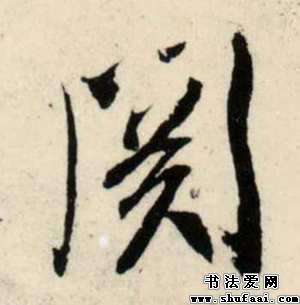 関
书法爱网
www.shufaai.com